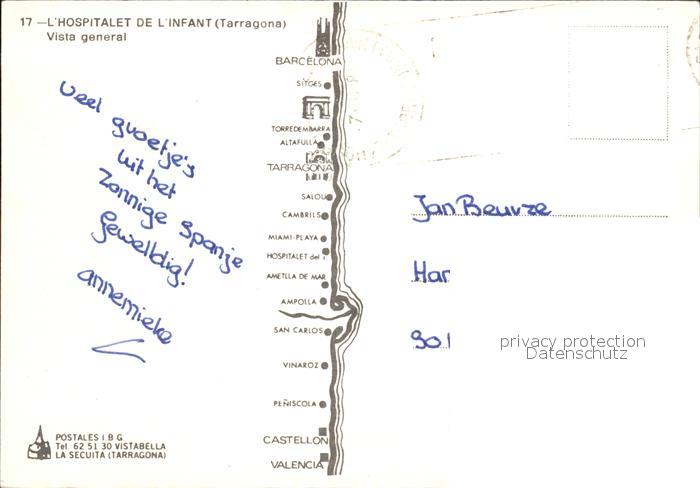 17 — L'HOSPITALET DE L'INFANT (Tarragona)
Vista general
Veel groetje's
uit het
Zonnige Spanje
Geweldig!
annemieke
BARCELONA
SITGES
TORREDEMBARRA
ALTAFULLA
TARRAGONA
SALOU
CAMBRILS
MIAMI-PLAYA
HOSPITALET del I.
AMETLLA DE MAR
AMPOLLA
SAN CARLOS
VINAROZ
PEÑISCOLA
CASTELLON
VALENCIA
Jan Beurze
Har
901
privacy protection
Datenschutz
POSTALES I.B.G
Tel 62 51 30 VISTABELLA
LA SECUITA (TARRAGONA)